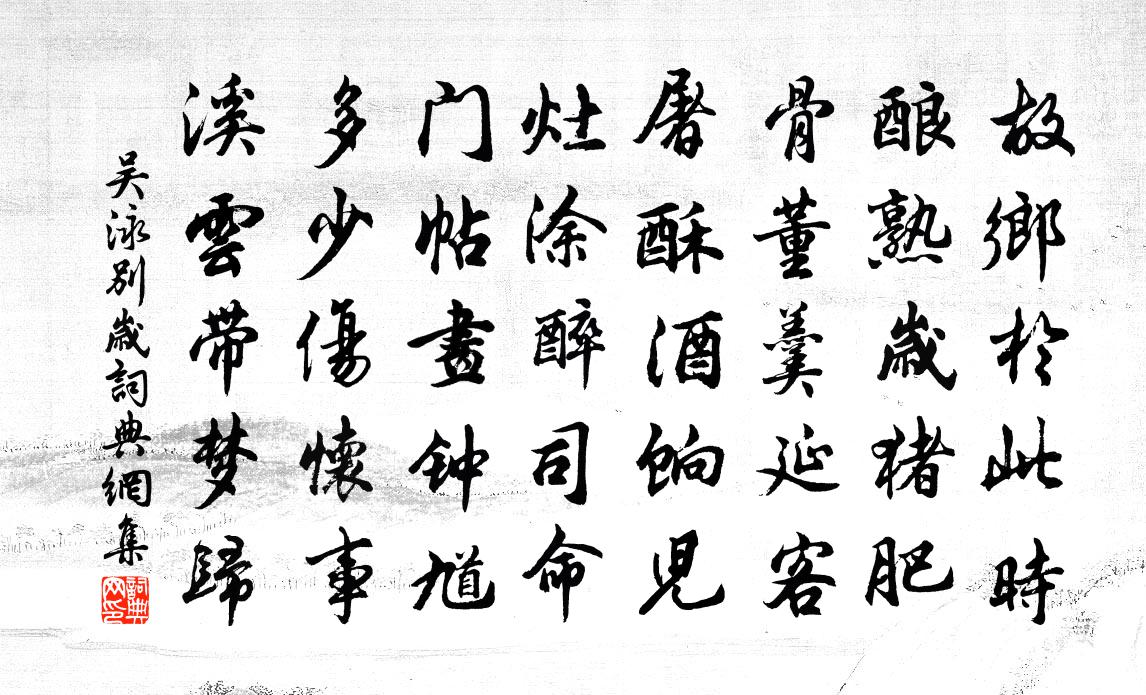 故鄉於此時
酿熟歲猪肥
骨董羹延客
屠酥酒餉兒
灶涂醉司命
门帖畫钟馗
多少傷懷事
溪雲帶梦歸
吴泳别歲詞典網集
詞典网印